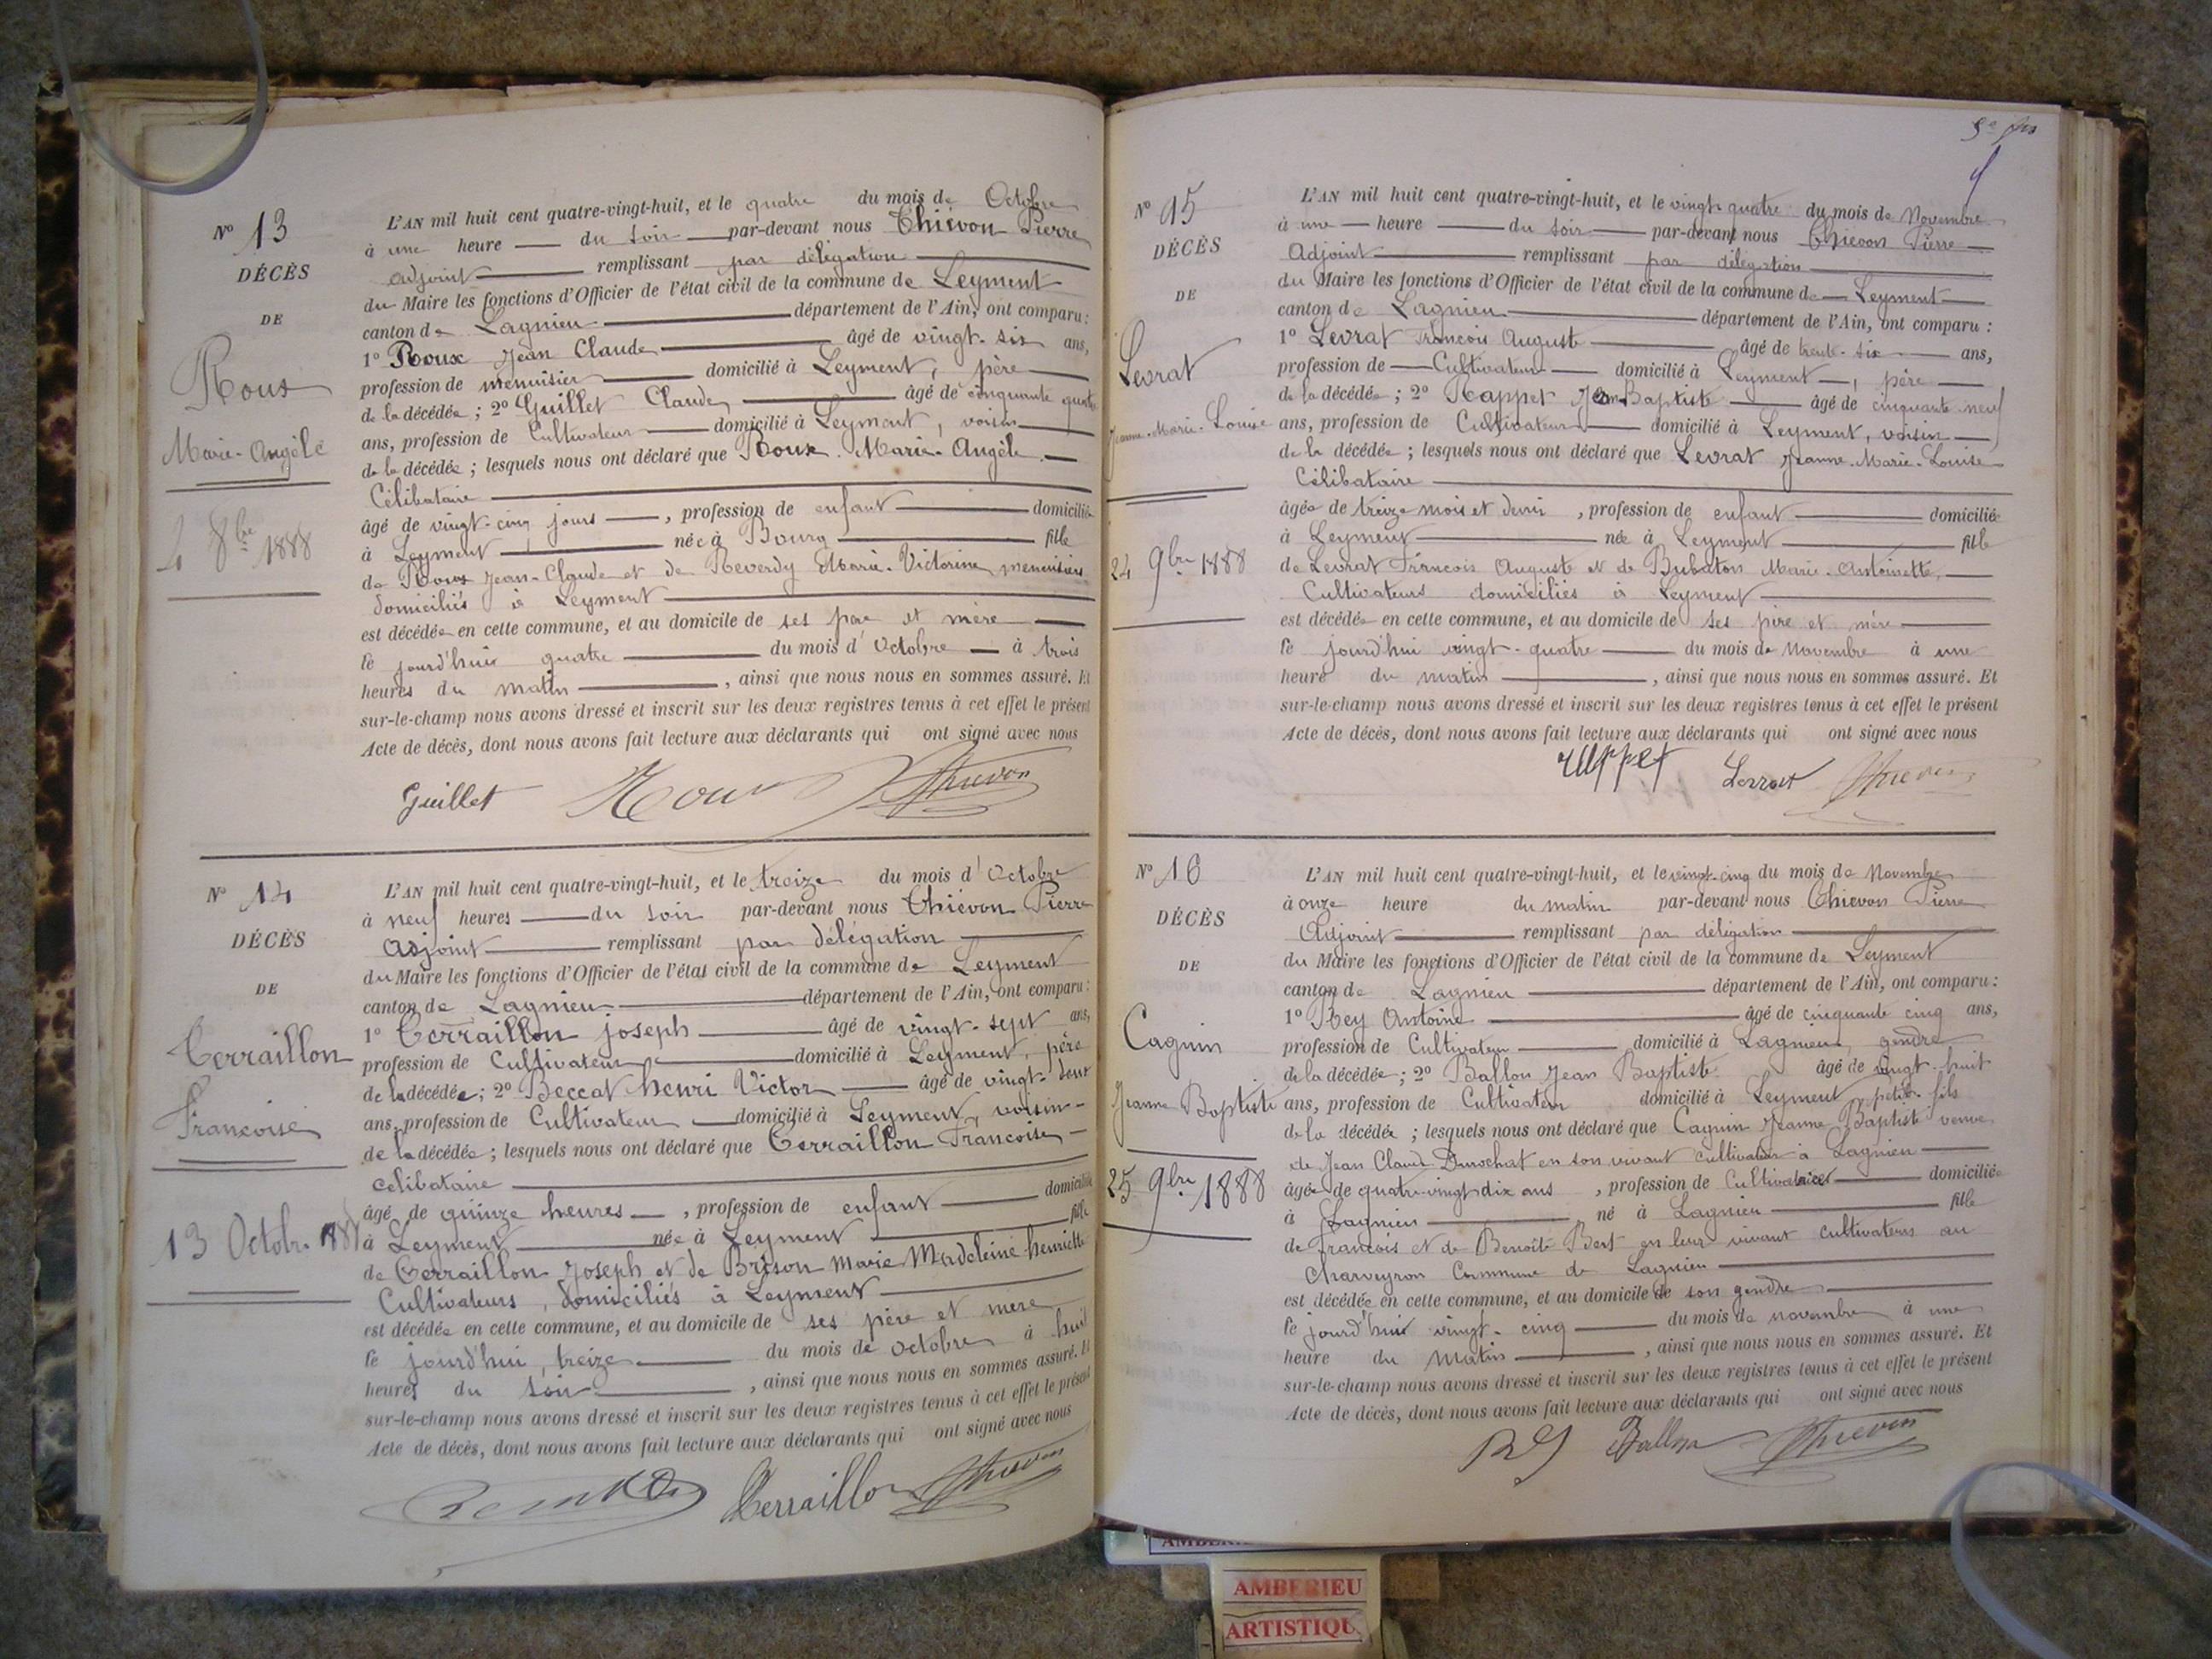 N° 13
DÉCÈS
DE
Roux
Marie-Angèle
4 8bre 1888
L'AN mil huit cent quatre-vingt-huit, et le quatre du mois de Octobre
à une heure du soir par-devant nous Thiévon Pierre
adjoint remplissant par délégation
du Maire les fonctions d'Officier de l'état civil de la commune de Leyment
canton de Lagnieu département de l'Ain, ont comparu :
1° Roux Jean Claude âgé de vingt-six ans,
profession de menuisier domicilié à Leyment, père
de la décédée ; 2° Guillet Claude âgé de cinquante quatre
ans, profession de Cultivateur domicilié à Leyment, voisin
de la décédée ; lesquels nous ont déclaré que Roux Marie-Angèle
Célibataire
âgé de vingt-cinq jours, profession de enfant domiciliée
à Leyment née à Bourg fille
de Roux Jean-Claude et de Reverdy Marie-Victorine menuisiers
domiciliés à Leyment
est décédée en cette commune, et au domicile de ses père et mère
le jourd'hui quatre du mois d'Octobre à trois
heures du matin, ainsi que nous nous en sommes assuré. Et
sur-le-champ nous avons dressé et inscrit sur les deux registres tenus à cet effet le présent
Acte de décès, dont nous avons fait lecture aux déclarants qui ont signé avec nous
Guillet Roux Thievon
N° 14
DÉCÈS
DE
Terraillon
Françoise
13 Octobr. 1888
L'AN mil huit cent quatre-vingt-huit, et le treize du mois d'Octobre
à neuf heures du soir par-devant nous Thiévon Pierre
Adjoint remplissant par délégation
du Maire les fonctions d'Officier de l'état civil de la commune de Leyment
canton de Lagnieu département de l'Ain, ont comparu :
1° Terraillon Joseph âgé de vingt-sept ans,
profession de Cultivateur domicilié à Leyment, père
de la décédée ; 2° Beccat henri Victor âgé de vingt-deux
ans, profession de Cultivateur domicilié à Leyment, voisin
de la décédée ; lesquels nous ont déclaré que Terraillon Françoise
celibataire
âgé de quinze heures, profession de enfant domiciliée
à Leyment née à Leyment fille
de Terraillon Joseph et de Brison Marie Madeleine henriette
Cultivateurs, domiciliés à Leyment
est décédée en cette commune, et au domicile de ses père et mère
le jourd'hui, treize du mois de octobre à huit
heures du soir, ainsi que nous nous en sommes assuré. Et
sur-le-champ nous avons dressé et inscrit sur les deux registres tenus à cet effet le présent
Acte de décès, dont nous avons fait lecture aux déclarants qui ont signé avec nous
Terraillon Thievon
N° 15
DÉCÈS
DE
Levrat
Jeanne-Marie-Louise
24 9bre 1888
L'AN mil huit cent quatre-vingt-huit, et le vingt-quatre du mois de Novembre
à une heure du soir par-devant nous Thievon Pierre
Adjoint remplissant par délégation
du Maire les fonctions d'Officier de l'état civil de la commune de Leyment
canton de Lagnieu département de l'Ain, ont comparu :
1° Levrat François Auguste âgé de trente-six ans,
profession de Cultivateur domicilié à Leyment, père
de la décédée ; 2° Rappet Jean-Baptiste âgé de cinquante neuf
ans, profession de Cultivateur domicilié à Leyment, voisin
de la décédée ; lesquels nous ont déclaré que Levrat Jeanne-Marie-Louise
Célibataire
âgée de treize mois et demi, profession de enfant domiciliée
à Leyment née à Leyment fille
de Levrat François Auguste et de Bubaton Marie-Antoinette,
Cultivateurs domiciliés à Leyment
est décédée en cette commune, et au domicile de ses père et mère
le jourd'hui vingt-quatre du mois de Novembre à une
heure du matin, ainsi que nous nous en sommes assuré. Et
sur-le-champ nous avons dressé et inscrit sur les deux registres tenus à cet effet le présent
Acte de décès, dont nous avons fait lecture aux déclarants qui ont signé avec nous
rappet Levrat Thievon
N° 16
DÉCÈS
DE
Cagnin
Jeanne Baptiste
25 9bre 1888
L'AN mil huit cent quatre-vingt-huit, et le vingt-cinq du mois de Novembre
à onze heure du matin par-devant nous Thievon Pierre
Adjoint remplissant par délégation
du Maire les fonctions d'Officier de l'état civil de la commune de Leyment
canton de Lagnieu département de l'Ain, ont comparu :
1° Rey Antoine âgé de cinquante cinq ans,
profession de Cultivateur domicilié à Lagnieu, gendre
de la décédée ; 2° Ballon Jean Baptiste âgé de vingt-huit
ans, profession de Cultivateur domicilié à Leyment petit-fils
de la décédée ; lesquels nous ont déclaré que Cagnin Jeanne Baptiste veuve
de Jean Claude Durochat en son vivant cultivateur à Lagnieu
âgée de quatre-vingt dix ans, profession de Cultivatrice domiciliée
à Lagnieu né à Lagnieu fille
de François et de Benoîte Bert en leur vivant cultivateurs au
Charveyron Commune de Lagnieu
est décédée en cette commune, et au domicile de son gendre
le jourd'hui vingt-cinq du mois de novembre à une
heure du matin, ainsi que nous nous en sommes assuré. Et
sur-le-champ nous avons dressé et inscrit sur les deux registres tenus à cet effet le présent
Acte de décès, dont nous avons fait lecture aux déclarants qui ont signé avec nous
Rey Ballon Thievon
AMBERIEU
ARTISTIQU